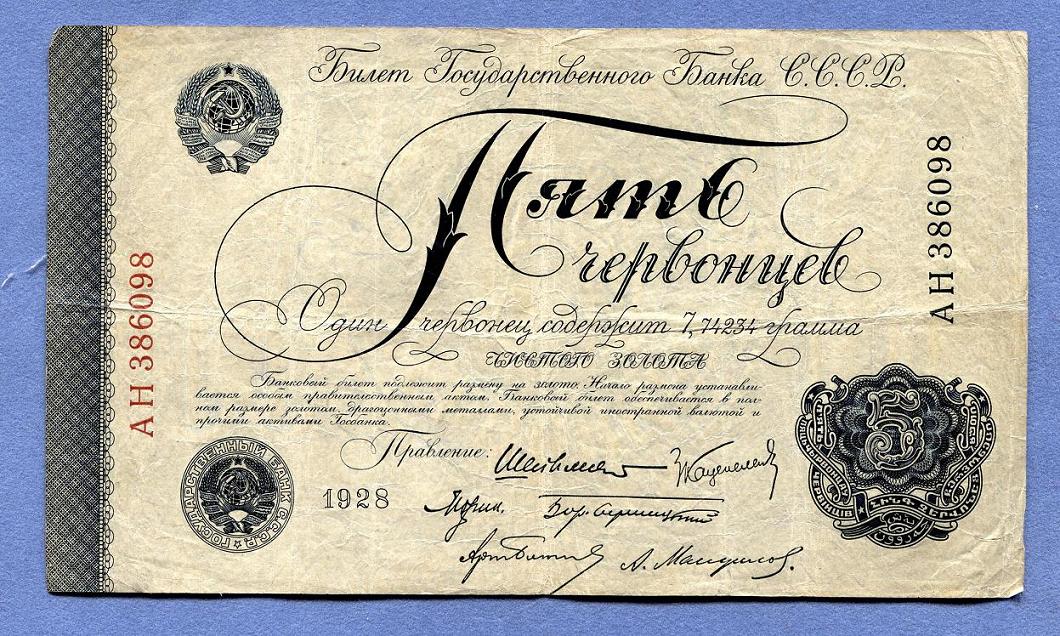 Билет Государственного Банка С.С.С.Р.
Пять
червонцев
Один червонец содержит 7,74234 грамма
ЧИСТОГО ЗОЛОТА
Банковый билет подлежит размену на золото. Начало размена устанавли-
вается особым правительственным актом. Банковый билет обеспечивается в пол-
ном размере золотом, драгоценными металлами, устойчивой иностранной валютой и
прочими активами Госбанка.
Правление:
1928
АН 386098
АН 386098
ГОСУДАРСТВЕННЫЙ БАНК С.С.С.Р.
5